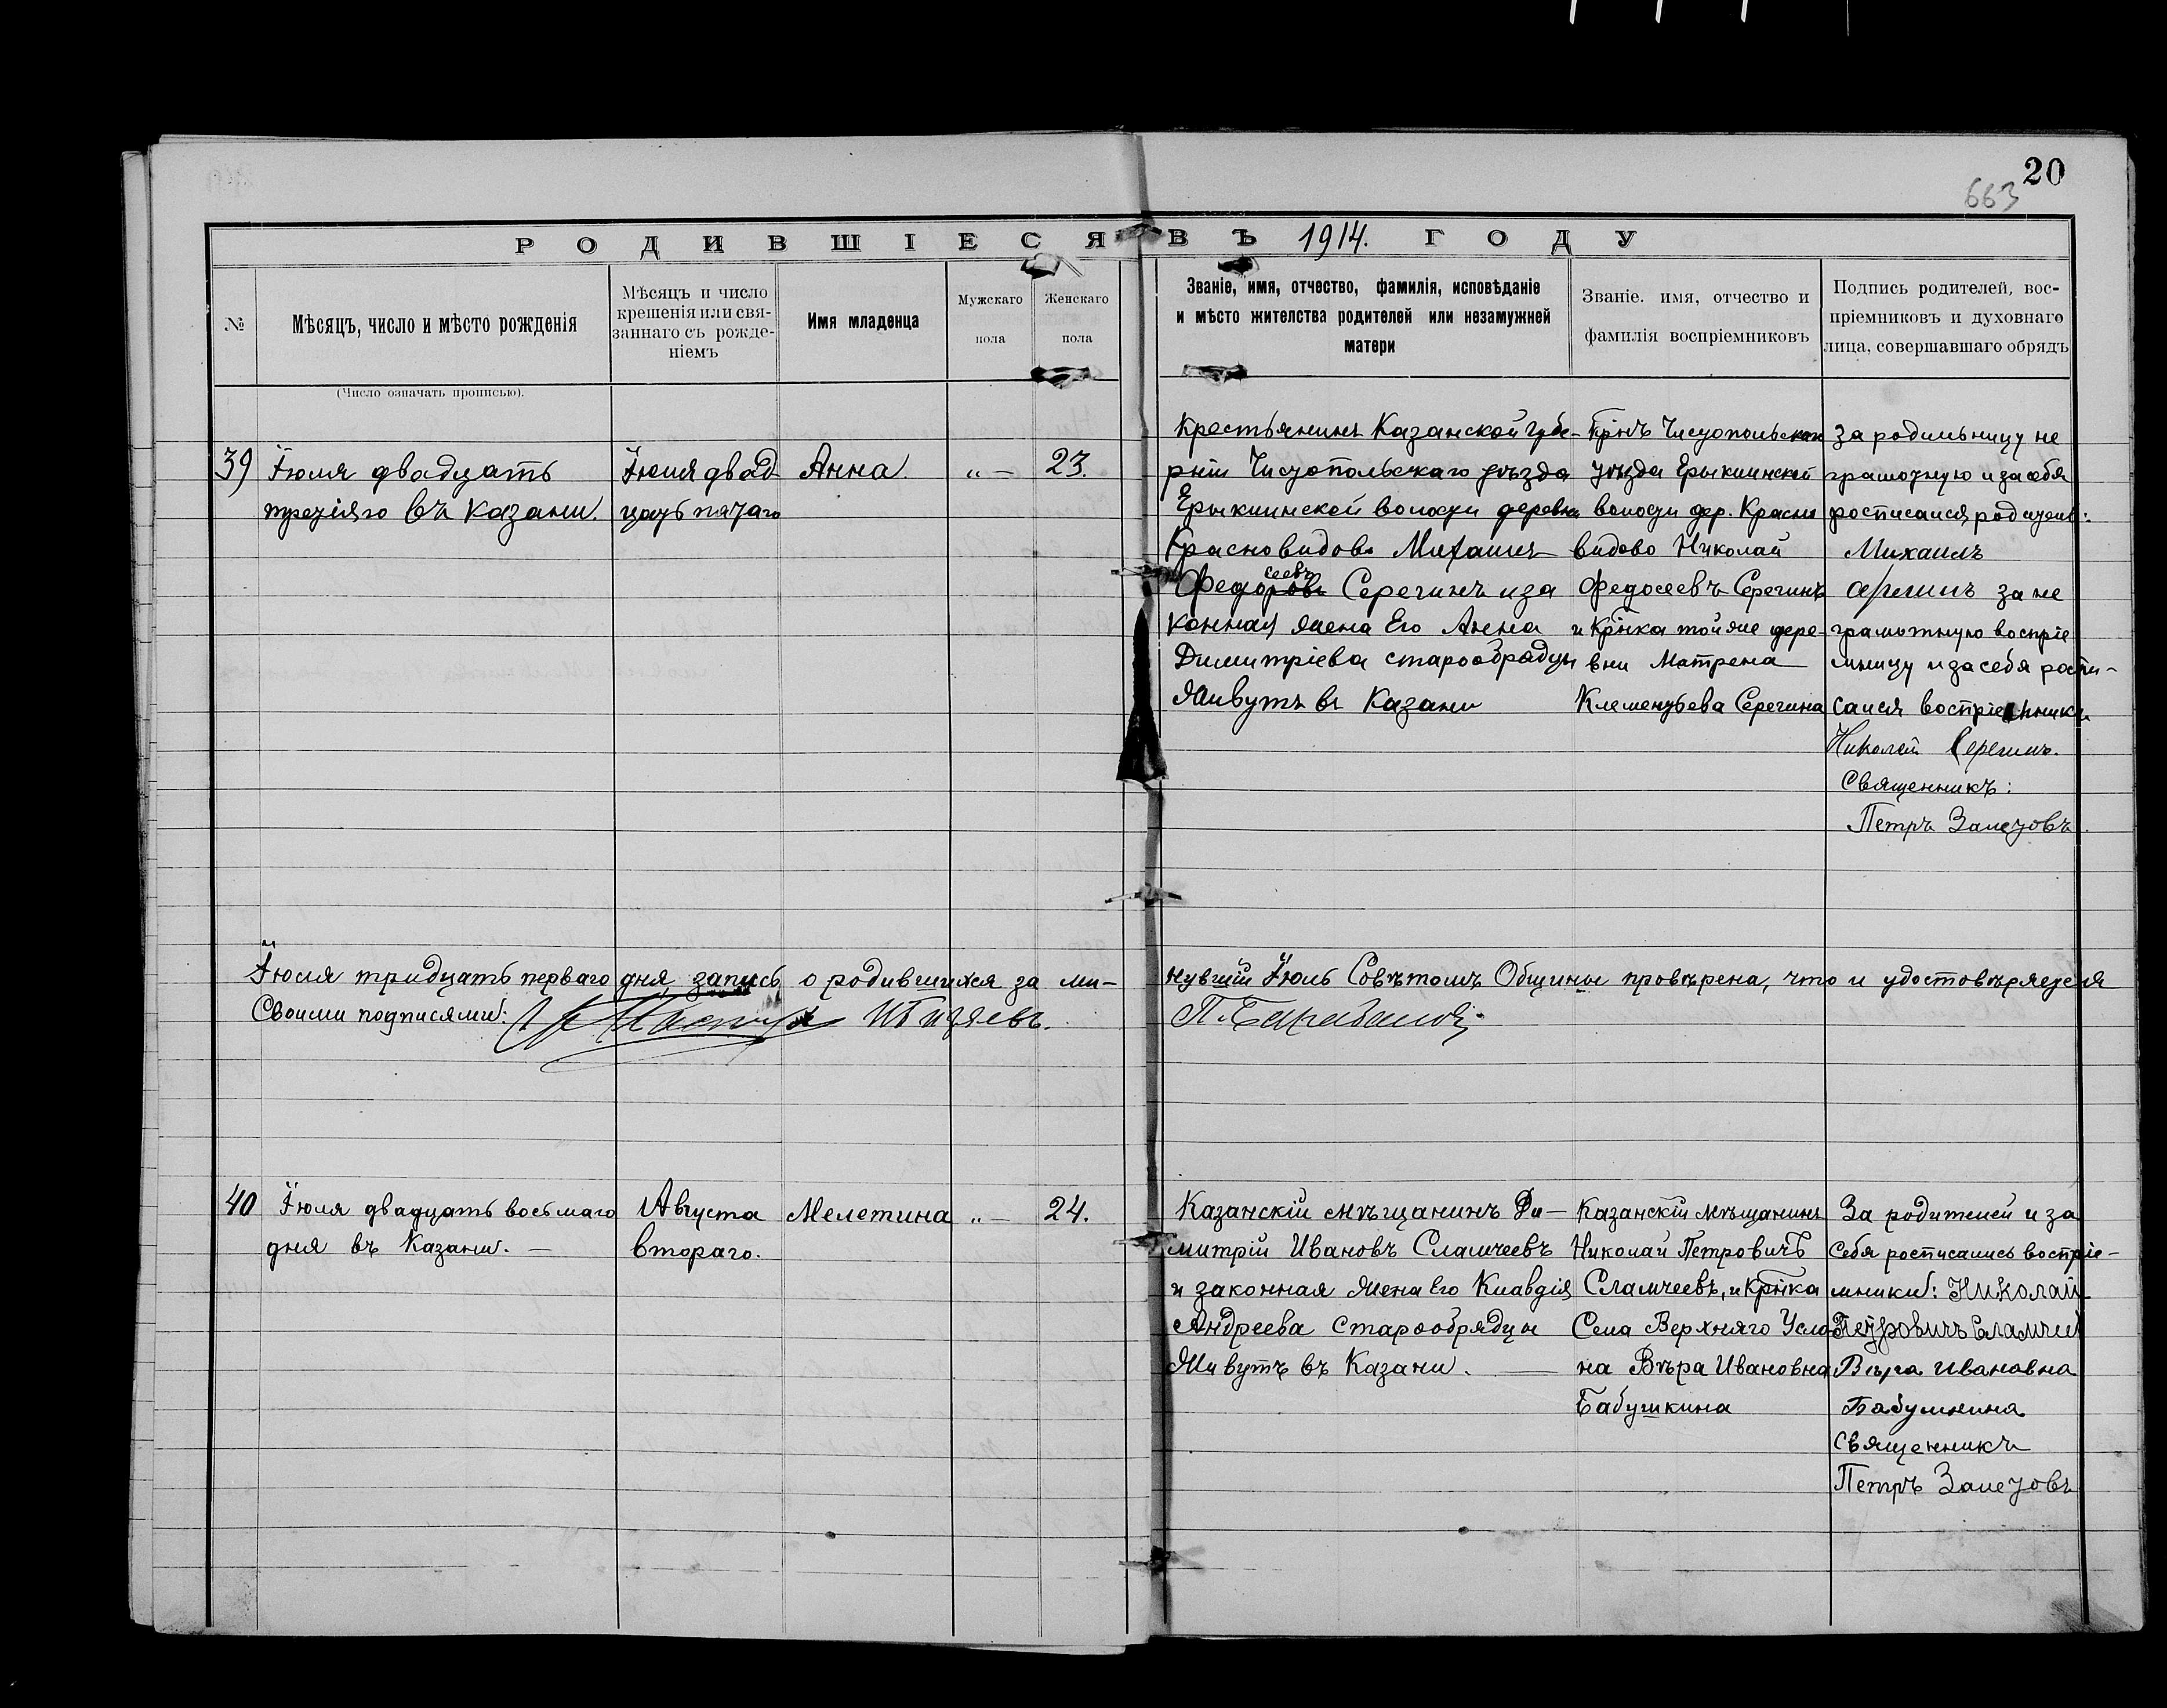 20
663
РОДИВШІЕСЯ ВЪ 1914. ГОДУ
№
Мѣсяцъ, число и мѣсто рожденія
(Число означать прописью).
Мѣсяцъ и число
крещенія или свя-
заннаго съ рожде-
ніемъ
Имя младенца
Мужскаго
пола
Женскаго
пола
Званіе, имя, отчество, фамилія, исповѣданіе
и мѣсто жителства родителей или незамужней
матери
Званіе. имя, отчество и
фамилія воспріемниковъ
Подпись родителей, вос-
пріемниковъ и духовнаго
лица, совершавшаго обрядъ
39
Іюля двадцать
третіяго въ Казани.
Іюля двад
цать пятаго
Анна.
„ —
23.
Крестьянинъ Казанской губе-
рніи Чистопольскаго уѣзда
Ерыклинской волости деревни
Красновидово Михаилъ
Федоровъ сеевъ Серегинъ и за
конная жена Его Анна
Димитріева старообрядцы
Живутъ въ Казани
Крнъ Чистопольскаго
уѣзда Ерыклинской
волости дер. Красно
видово Николай
Федосеевъ Серегинъ
и Крнка той же дере-
вни Матрена
Клементьева Серегина
За родильницу не
грамотную и за себя
росписался родитель:
Михаилъ
Серегинъ за не
грамотную воспріе
мницу и за себя роспи-
сался воспріемникъ
Николай Серегинъ.
Священникъ:
Петръ Залетовъ.
Іюля тридцать перваго дня, запись о родившихся за ми-
нувшій Іюль Совѣтомъ Общины провѣрена, что и удостовѣряется
Своими подписями:
П. Барабановъ
40
Іюля двадцать восьмаго
дня въ Казани. —
Августа
втораго.
Мелетина
„ —
24.
Казанскій мѣщанинъ Ди-
митрій Ивановъ Сламчеевъ
и законная жена Его Клавдія
Андреева Старообрядцы
Живутъ въ Казани. —
Казанскій мѣщанинъ
Николай Петровичъ
Сламчеевъ, и Крнка
Села Верхняго Усло
на Вѣра Ивановна
Бабушкина
За родителей и за
Себя росписались воспріе-
мники: Николай
Петровичъ Сламчеев
Вѣра Ивановна
Бабушкина
Священникъ
Петръ Залетовъ